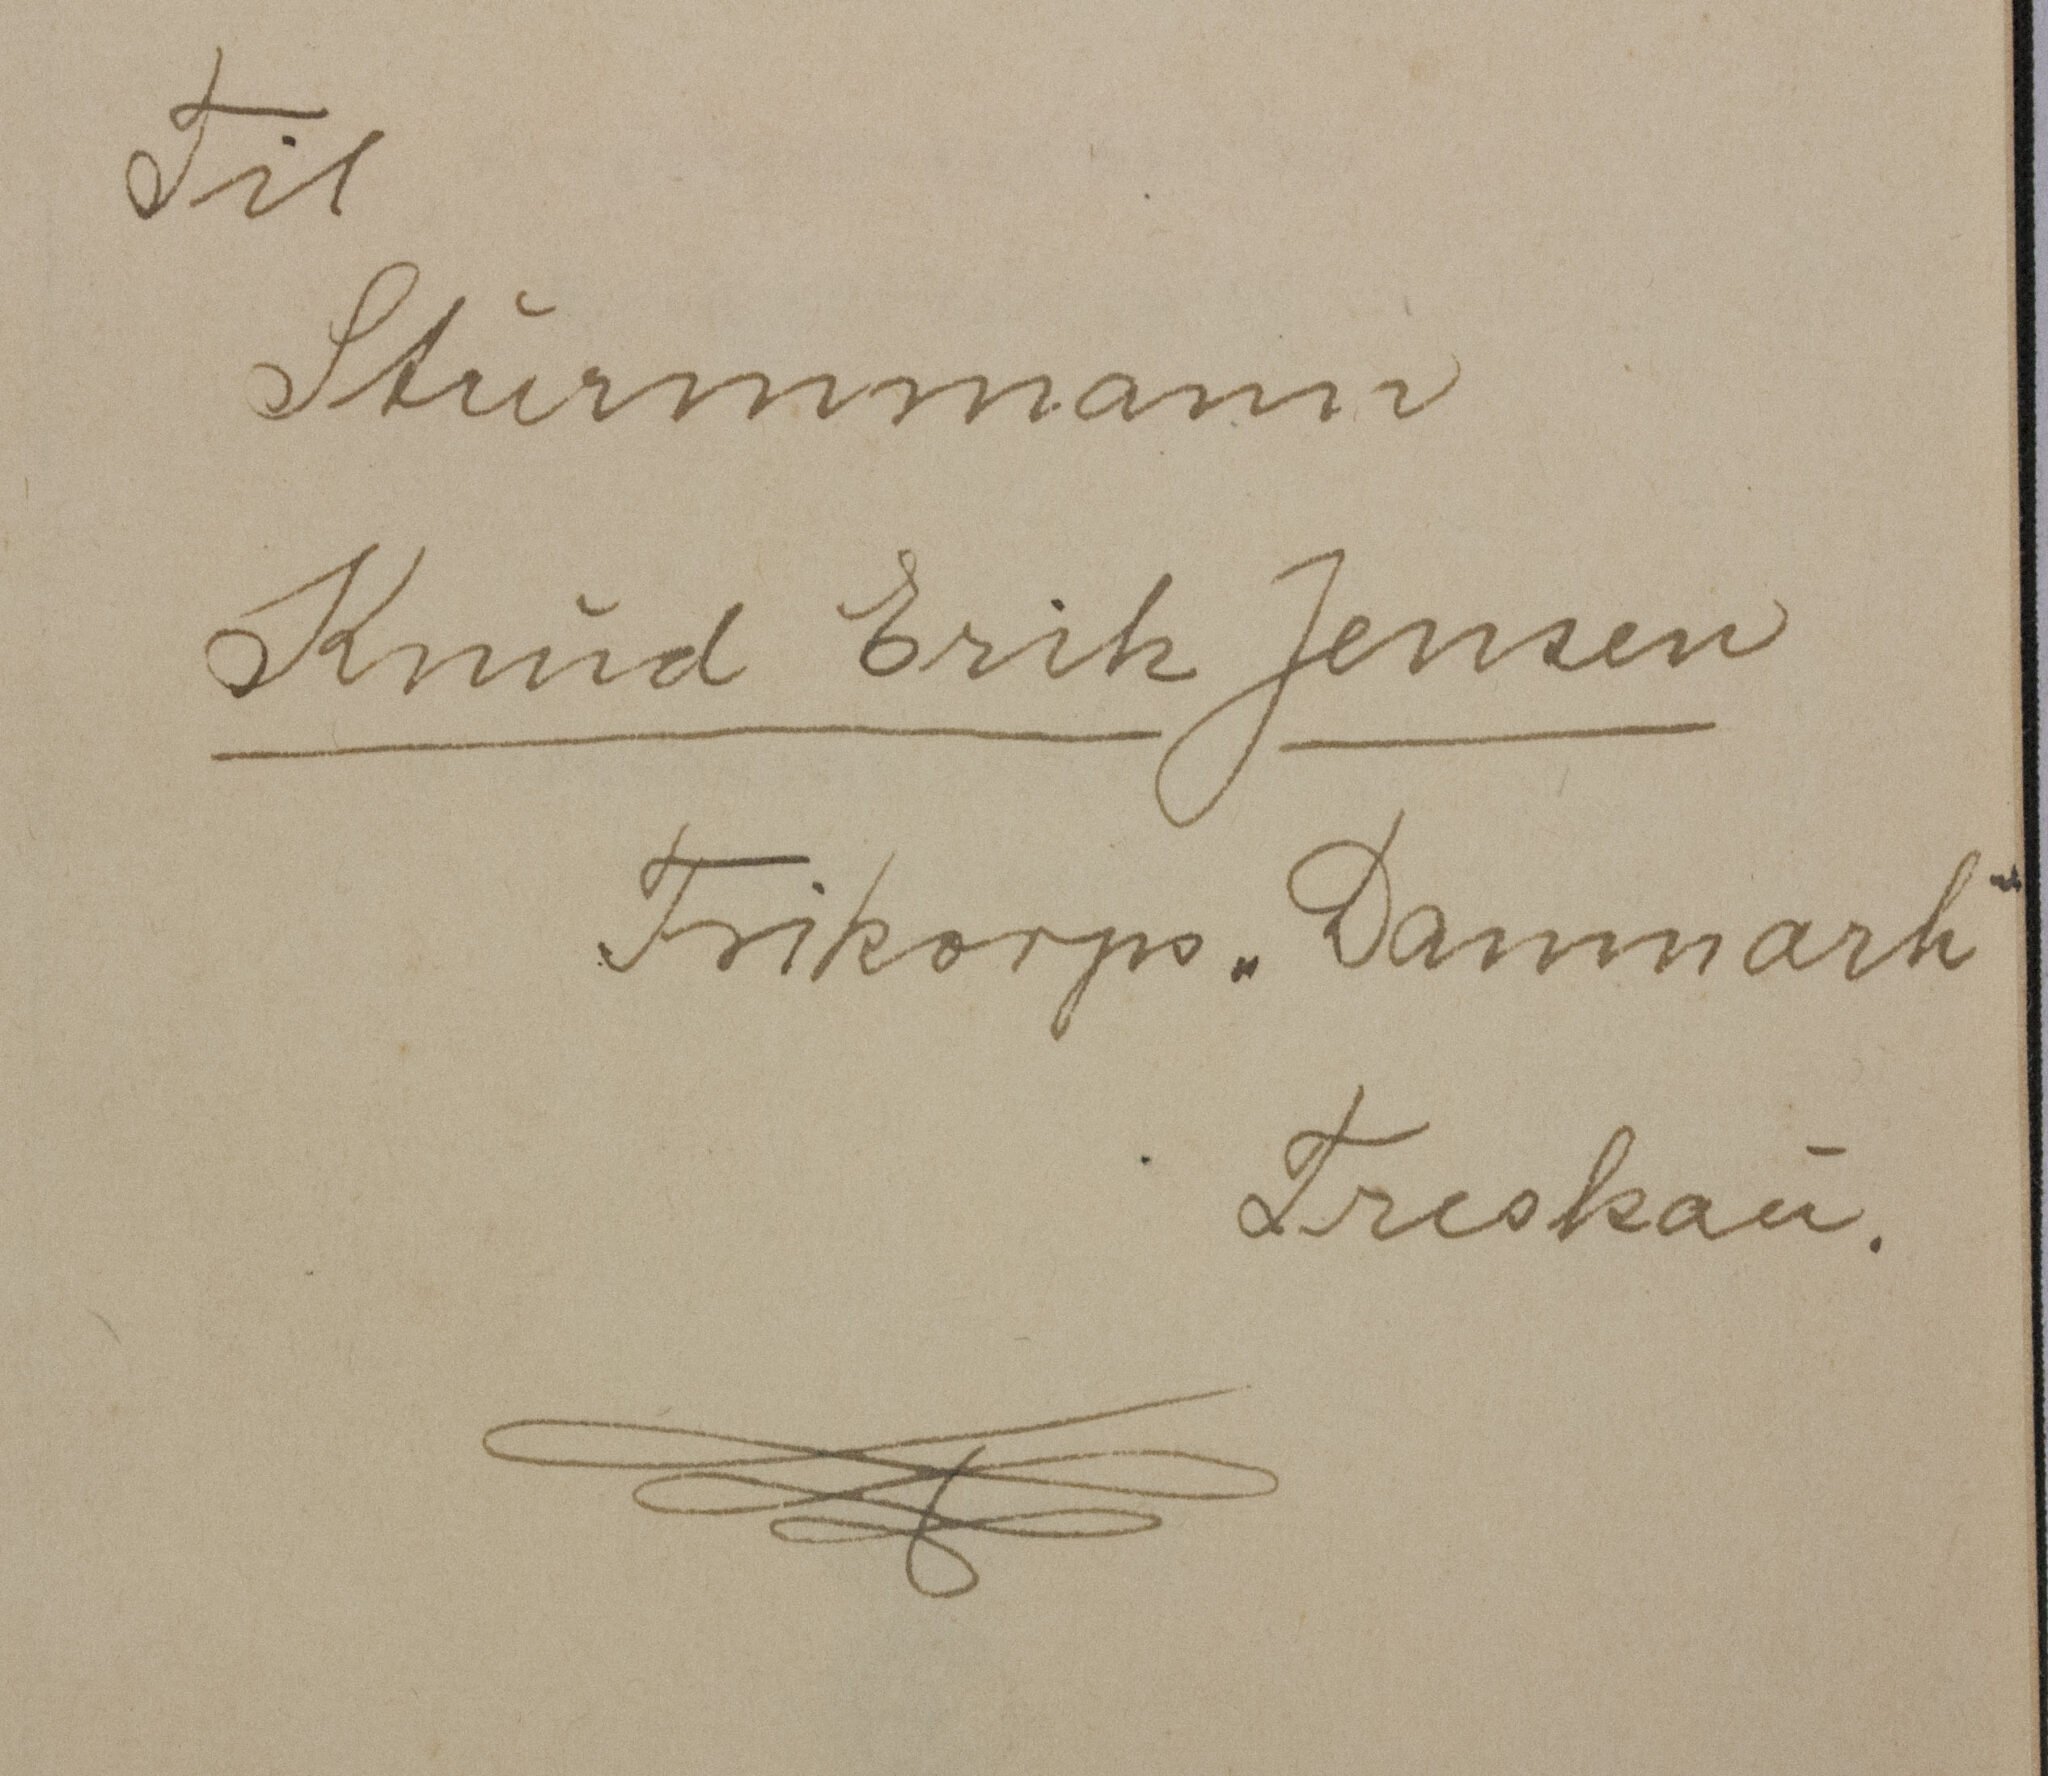 Til
Sturmmann
Knud Erik Jensen
Frikorps „Danmark"
Treskau.